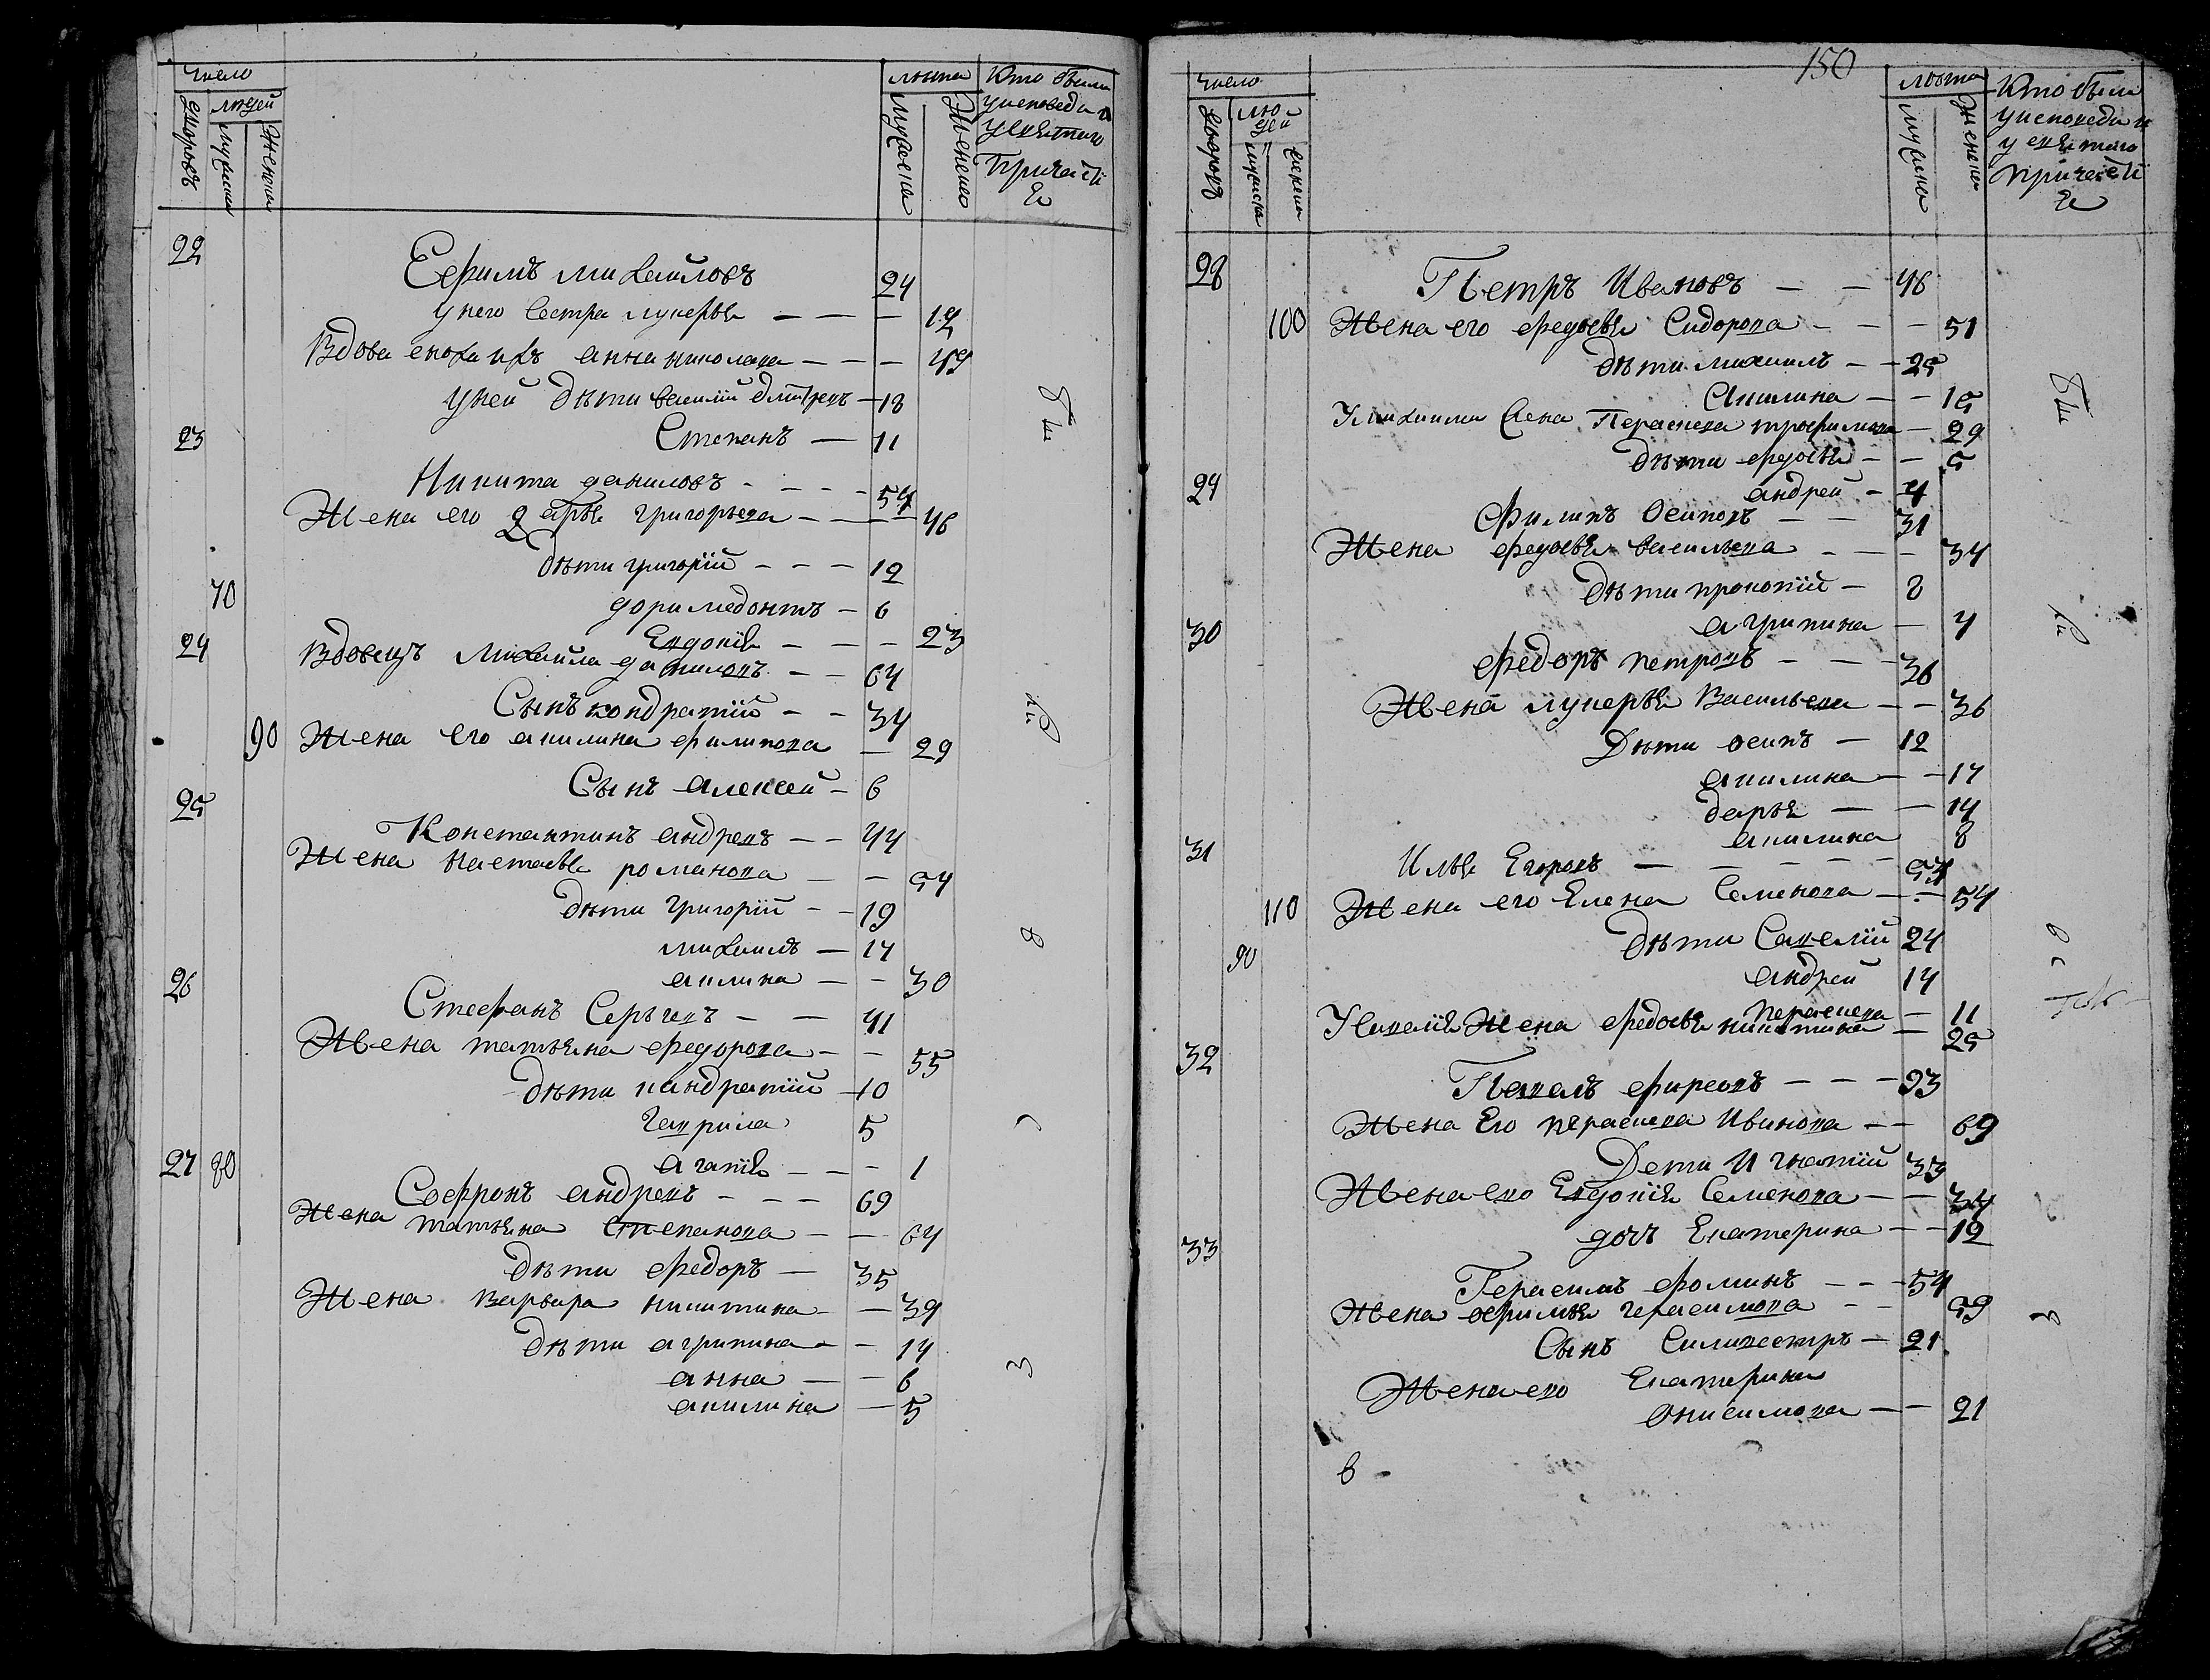 Число
дворовъ
людей
мужска
женска
лѣта
мужска
женска
Кто были
у исповеди и
у святаго
Причастї
я
22
Ефимъ михайловъ 24
у него Сестра лукерья — — — 12
Вдова анна николаева — — — 49
у ней дѣти василїй дмитревъ — 18
23 Степанъ — 11
Никита даниловъ - - - - 54
Жена его дарья григорьева — — — 46
дѣти григорїй - - - 12
70 доримедонтъ — 6
Евдокїя - - - 23
24 Вдовецъ михаила даниловъ — — 64
Сынъ кондратїй - - 34
90 Жена его акилина филипова — 29
Сынъ алексей — 6
25
Константинъ андревъ — — 44
Жена настасья романова — — 54
дѣти григорїй — — 19
михаилъ — 17
26 акилина — — 30
Стефанъ Сергѣевъ — — 41
Жена татьяна федорова — — 55
дѣти кандратїй — 10
гаврила 5
27 80 агапїя — — — 1
Софронъ андревъ - - - 69
Жена татьяна степанова — — 64
дѣти федоръ — 35
Жена варвара никитина — — 39
дѣти агрипина — — 14
анна — — 6
акилина — 5
бы
ли
в
с
ѣ
150
Число
дворовъ
лю
дей
мужска
женска
лѣта
мужска
женска
Кто были
у исповеди и
у святаго
Причастї
я
28
Петръ Ивановъ — — 46
100 Жена его федосья Сидорова - - - 51
дѣти михаилъ — — 25
Акилина — — 15
У михаилы жена Параскева трофимова — 29
дѣти федосья — — 5
29 андрей — 4
Филипъ Осиповъ — — 31
Жена федосья васильева - - - 34
дѣти прокопїй — 8
30 агрипина — 4
федоръ петровъ - - - 36
Жена лукерья Васильева — — 36
Дѣти осипъ — 12
акилина — — 17
дарья — — 14
акилина 8
31
Илья Егоровъ — — — — — 54
110 Жена его Елена Семенова — — 54
дѣти Савелїй 24
90 андрей 14
параскева — 11
У Савелїя Жена федосья никитина — 25
32
Павелъ фирсовъ — — — 93
Жена Его параскева Иванова — — 69
Дети Игнатїй 33
Жена его Евдокїя Семенова — — 34
дочь Екатерина — — 12
33
Герасимъ фоминъ — — — 54
Жена ефимья герасимова — — 59
Сынъ Силивестръ — 21
Жена его Екатерина
Онисимова — — 21
в -
бы
ли
в
с